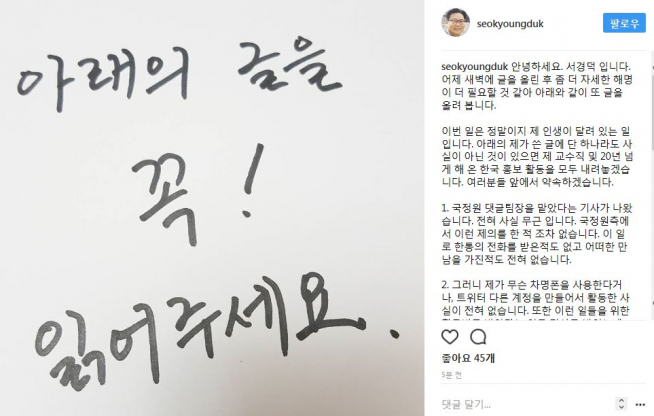 아래의 글을
꼭!
읽어주세요.
seokyoungduk
팔로우
seokyoungduk 안녕하세요. 서경덕 입니다.
어제 새벽에 글을 올린 후 좀 더 자세한 해명
이 더 필요할 것 같아 아래와 같이 또 글을
올려 봅니다.
이번 일은 정말이지 제 인생이 달려 있는 일
입니다. 아래의 제가 쓴 글에 단 하나라도 사
실이 아닌 것이 있으면 제 교수직 및 20년 넘
게 해 온 한국 홍보 활동을 모두 내려놓겠습
니다. 여러분들 앞에서 약속하겠습니다.
1. 국정원 댓글팀장을 맡았다는 기사가 나왔
습니다. 전혀 사실 무근 입니다. 국정원측에
서 이런 제의를 한 적 조차 없습니다. 이 일
로 한통의 전화를 받은적도 없고 어떠한 만
남을 가진적도 전혀 없습니다.
2. 그러니 제가 무슨 차명폰을 사용한다거
나, 트위터 다른 계정을 만들어서 활동한 사
실이 전혀 없습니다. 또한 이런 일들을 위한
좋아요 45개
5분 전
댓글 달기...